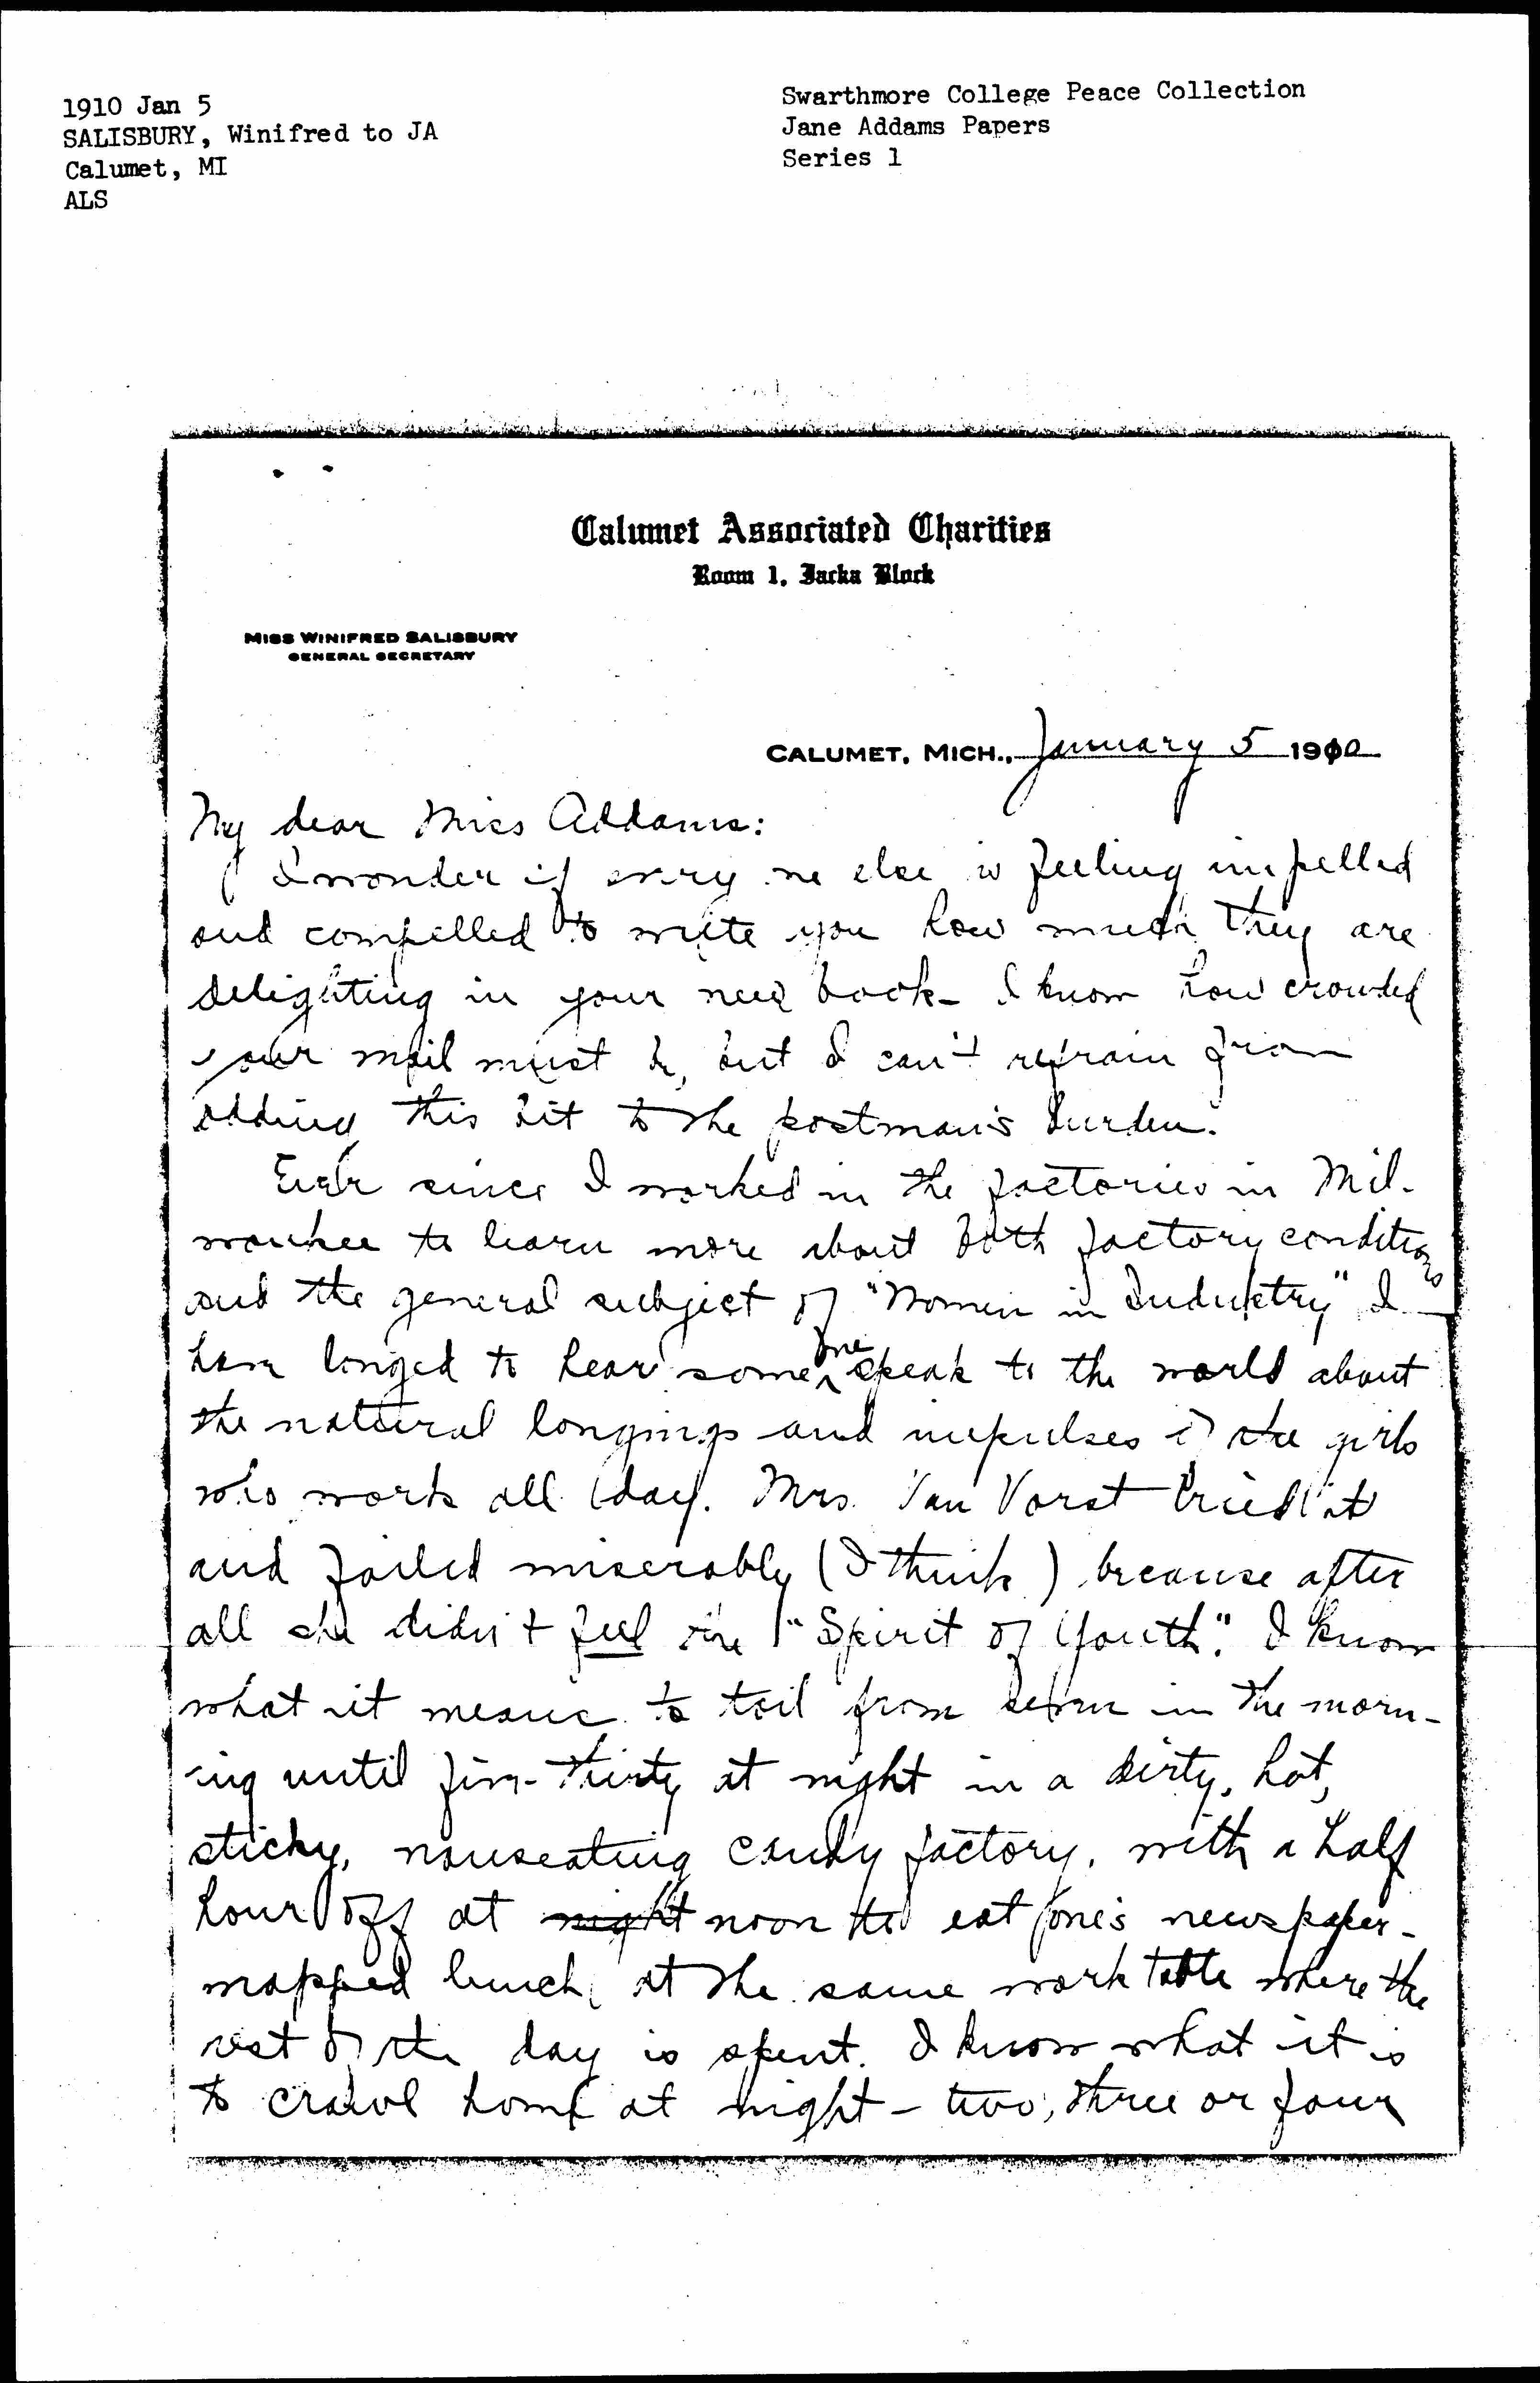 1910 Jan 5
SALISBURY, Winifred to JA
Calumet, MI
ALS
Swarthmore College Peace Collection
Jane Addams Papers
Series 1
Calumet Associated Charities
Room 1, Jacka Block
MISS WINIFRED SALISBURY
GENERAL SECRETARY
CALUMET, MICH., January 5 1910
My dear Miss Addams:
I wonder if every one else is feeling impelled
and compelled to write you how much they are
delighting in your new book - I know how crowded
your mail must be, but I can't refrain from
adding this bit to the postman's burden.
Ever since I worked in the factories in Mil-
waukee to learn more about both factory conditions
and the general subject of "Women in Industry" I
have longed to hear some one speak to the world about
the natural longings and impulses of the girls
who work all day. Mrs. Van Vorst tried it
and failed miserably (I think) because after
all she didn't feel the "Spirit of Youth". I know
what it means to toil from seven in the morn-
ing until five-thirty at night in a dirty, hot,
sticky, nauseating candy factory, with a half
hour off at night noon to eat one's newspaper-
wrapped lunch, at the same work table where the
rest of the day is spent. I know what it is
to crawl home at night - two, three or four